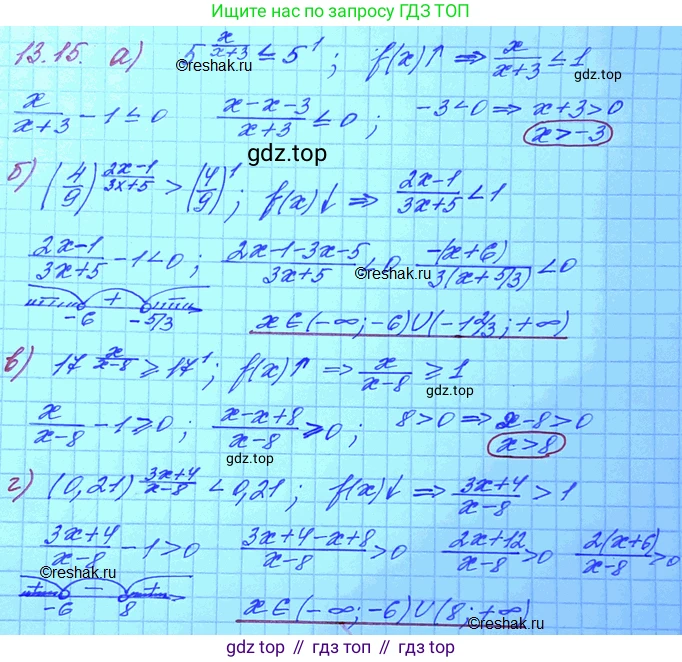 Ищите нас по запросу ГДЗ ТОП
13.15. а) 5^(x/(x+3)) ≤ 5^1 ; f(x)↑ ⇒ x/(x+3) ≤ 1
©reshak.ru
gdz.top
x/(x+3) - 1 ≤ 0 (x-x-3)/(x+3) ≤ 0 ; -3<0 ⇒ x+3>0
x>-3
gdz.top
б) (4/9)^((2x-1)/(3x+5)) > (4/9)^1 ; f(x)↓ ⇒ (2x-1)/(3x+5) < 1
(2x-1)/(3x+5) - 1 < 0 ; (2x-1-3x-5)/(3x+5) < 0 -(x+6)/(3(x+5/3)) < 0
©reshak.ru
+
-6 -5/3 x∈(-∞;-6)∪(-1 2/3;+∞)
в) 17^(x/(x-8)) ≥ 17^1 ; f(x)↑ ⇒ x/(x-8) ≥ 1
©reshak.ru
gdz.top
x/(x-8) - 1 ≥ 0 ; (x-x+8)/(x-8) ≥ 0 ; 8>0 ⇒ x-8>0
x>8
gdz.top
г) (0,21)^((3x+4)/(x-8)) < 0,21 ; f(x)↓ ⇒ (3x+4)/(x-8) > 1
©reshak.ru
(3x+4)/(x-8) - 1 > 0 (3x+4-x+8)/(x-8) > 0 (2x+12)/(x-8) > 0 2(x+6)/(x-8) > 0
©reshak.ru
+ - +
-6 8 x∈(-∞;-6)∪(8;+∞)
©reshak.ru
gdz top // gdz top // gdz top